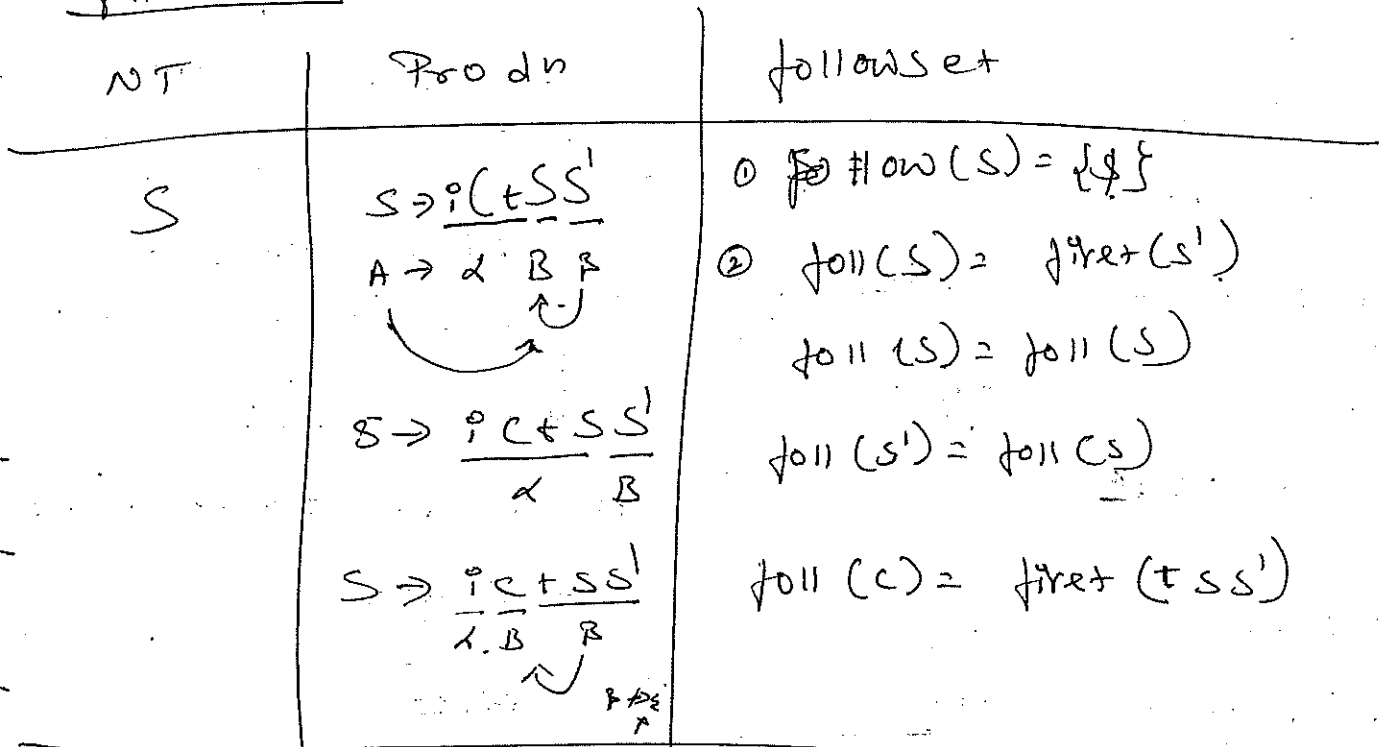 NT Prodn followset
S S → iCtSS' ① Follow(S) = {$}
A → α B β ② foll(S) = first(S')
foll(S) = foll(S)
S → iCtSS' foll(S') = foll(S)
α B
S → iCtSS' foll(C) = first(tSS')
α. B β